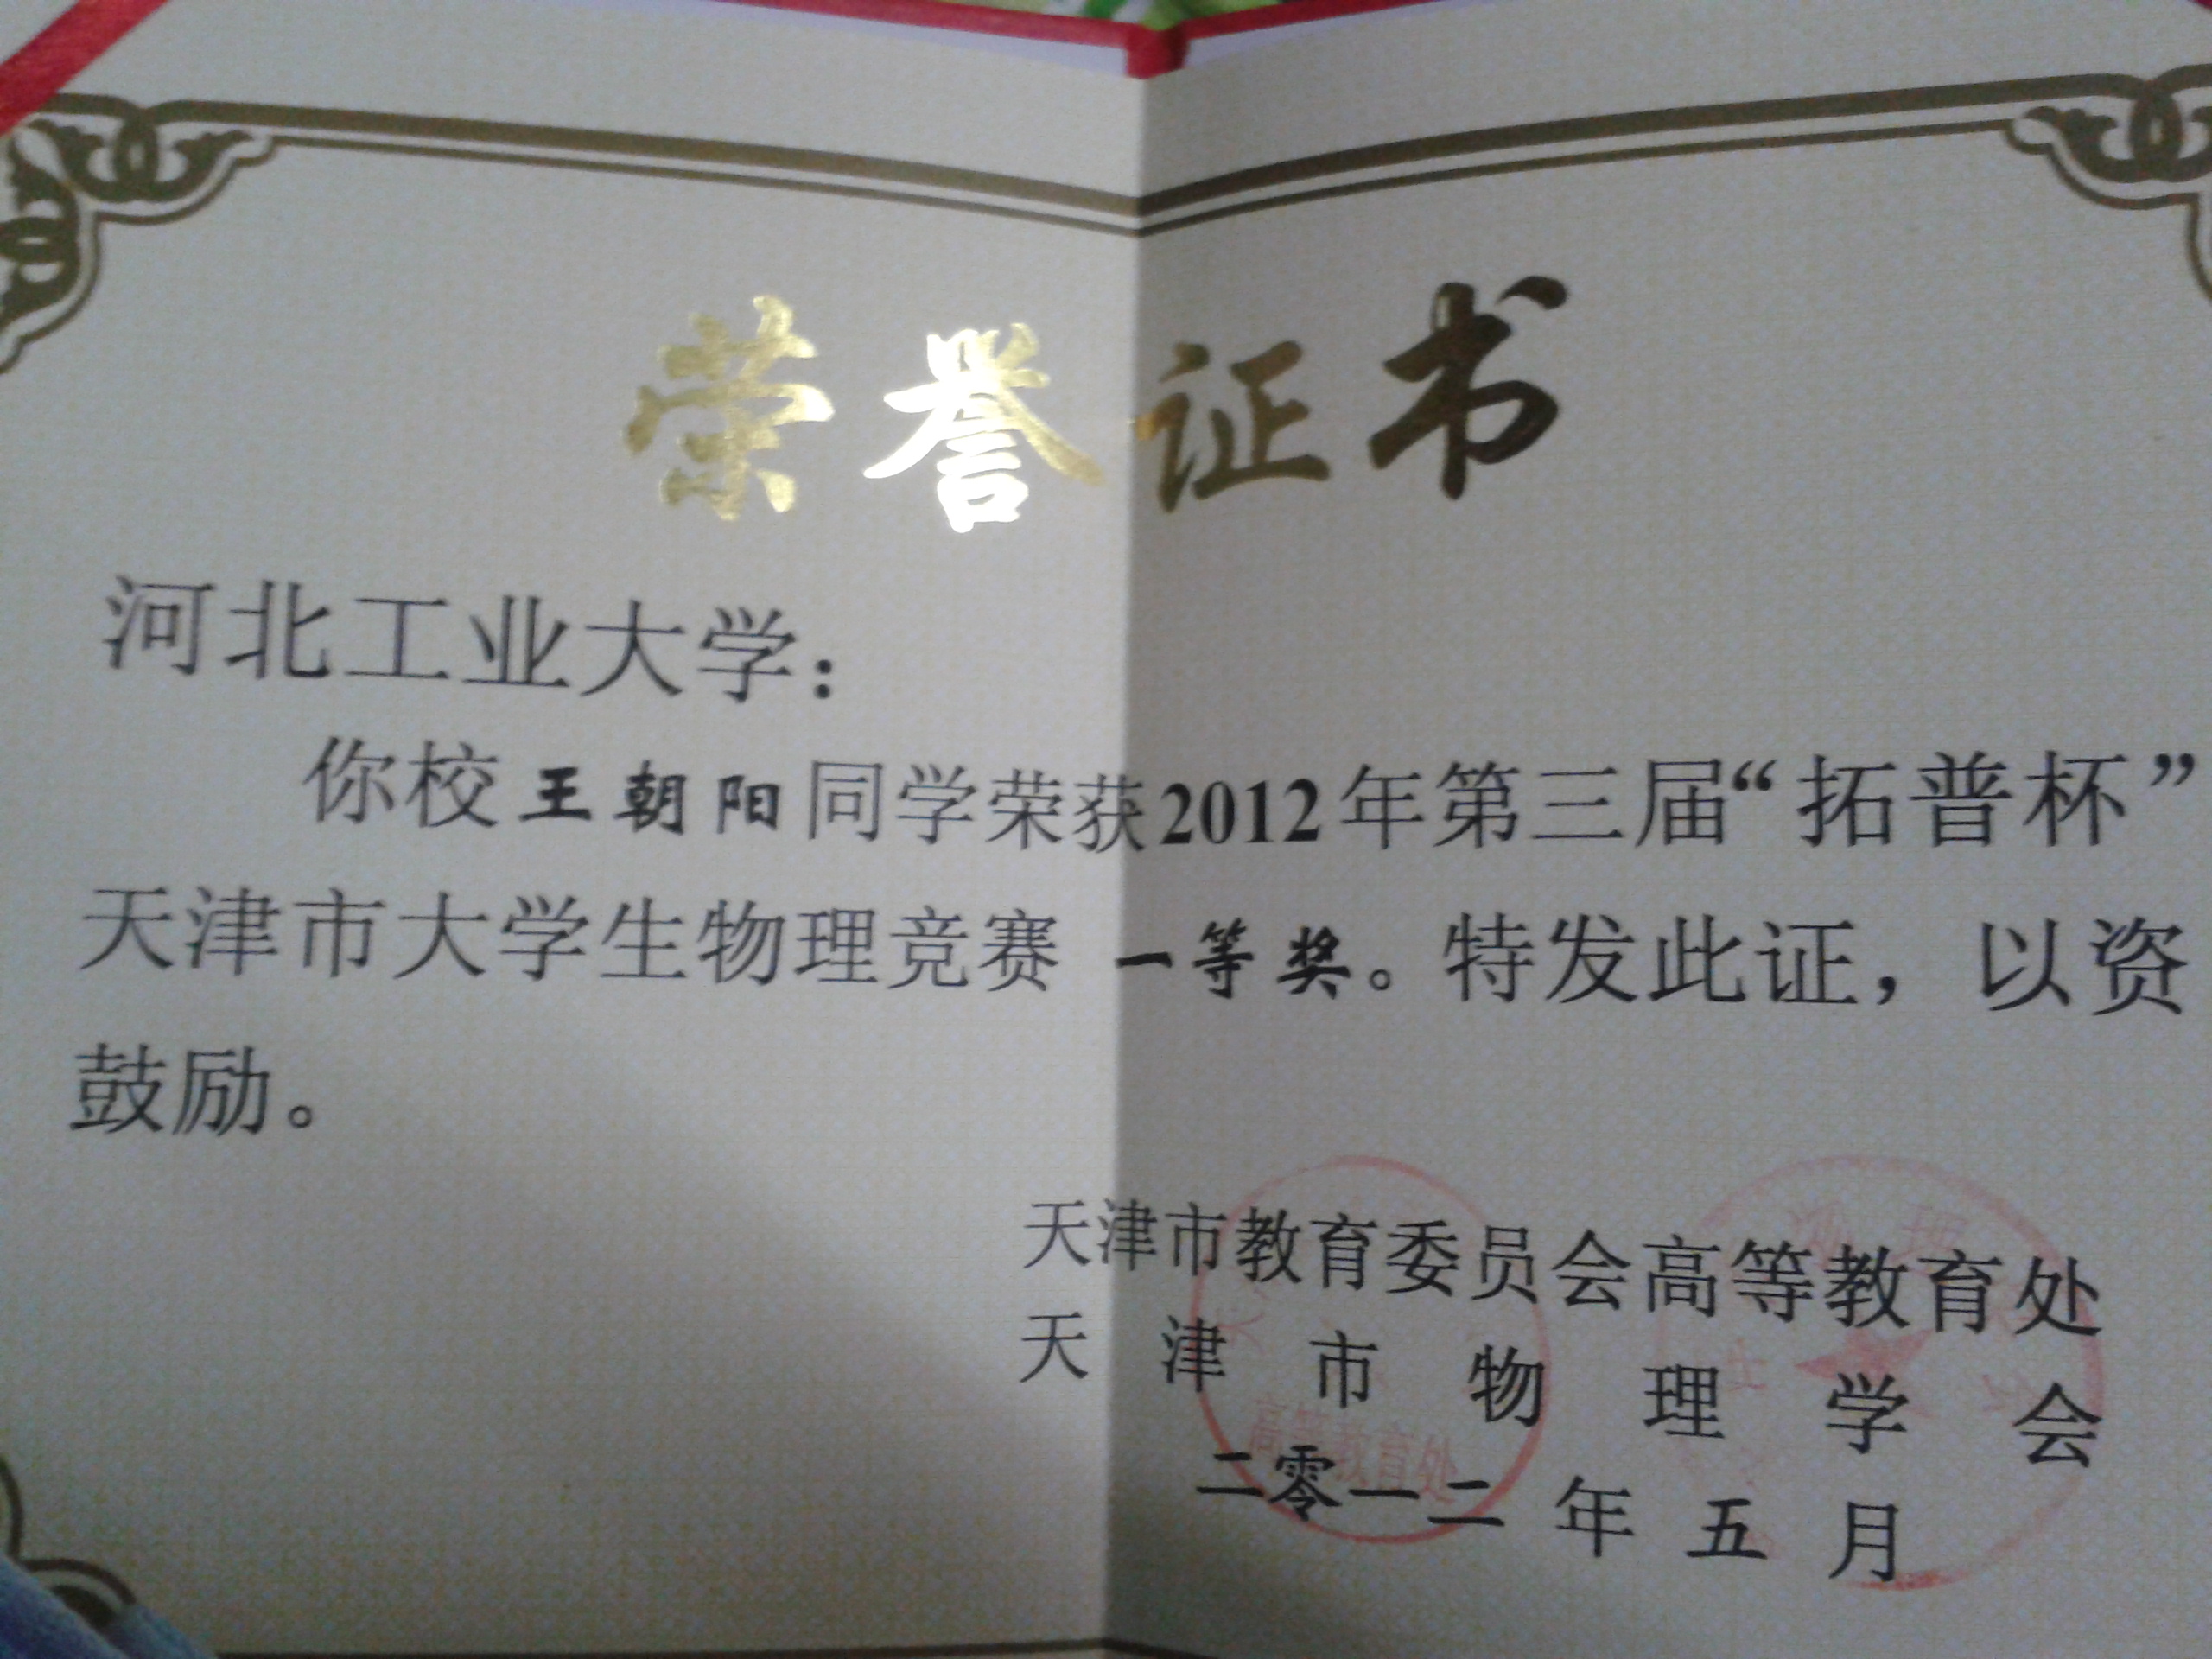 荣誉证书
河北工业大学：
你校王朝阳同学荣获2012年第三届“拓普杯”
天津市大学生物理竞赛 一等奖。特发此证，以资
鼓励。
天津市教育委员会高等教育处
天津市物理学会
二零一二年五月
高等教育处